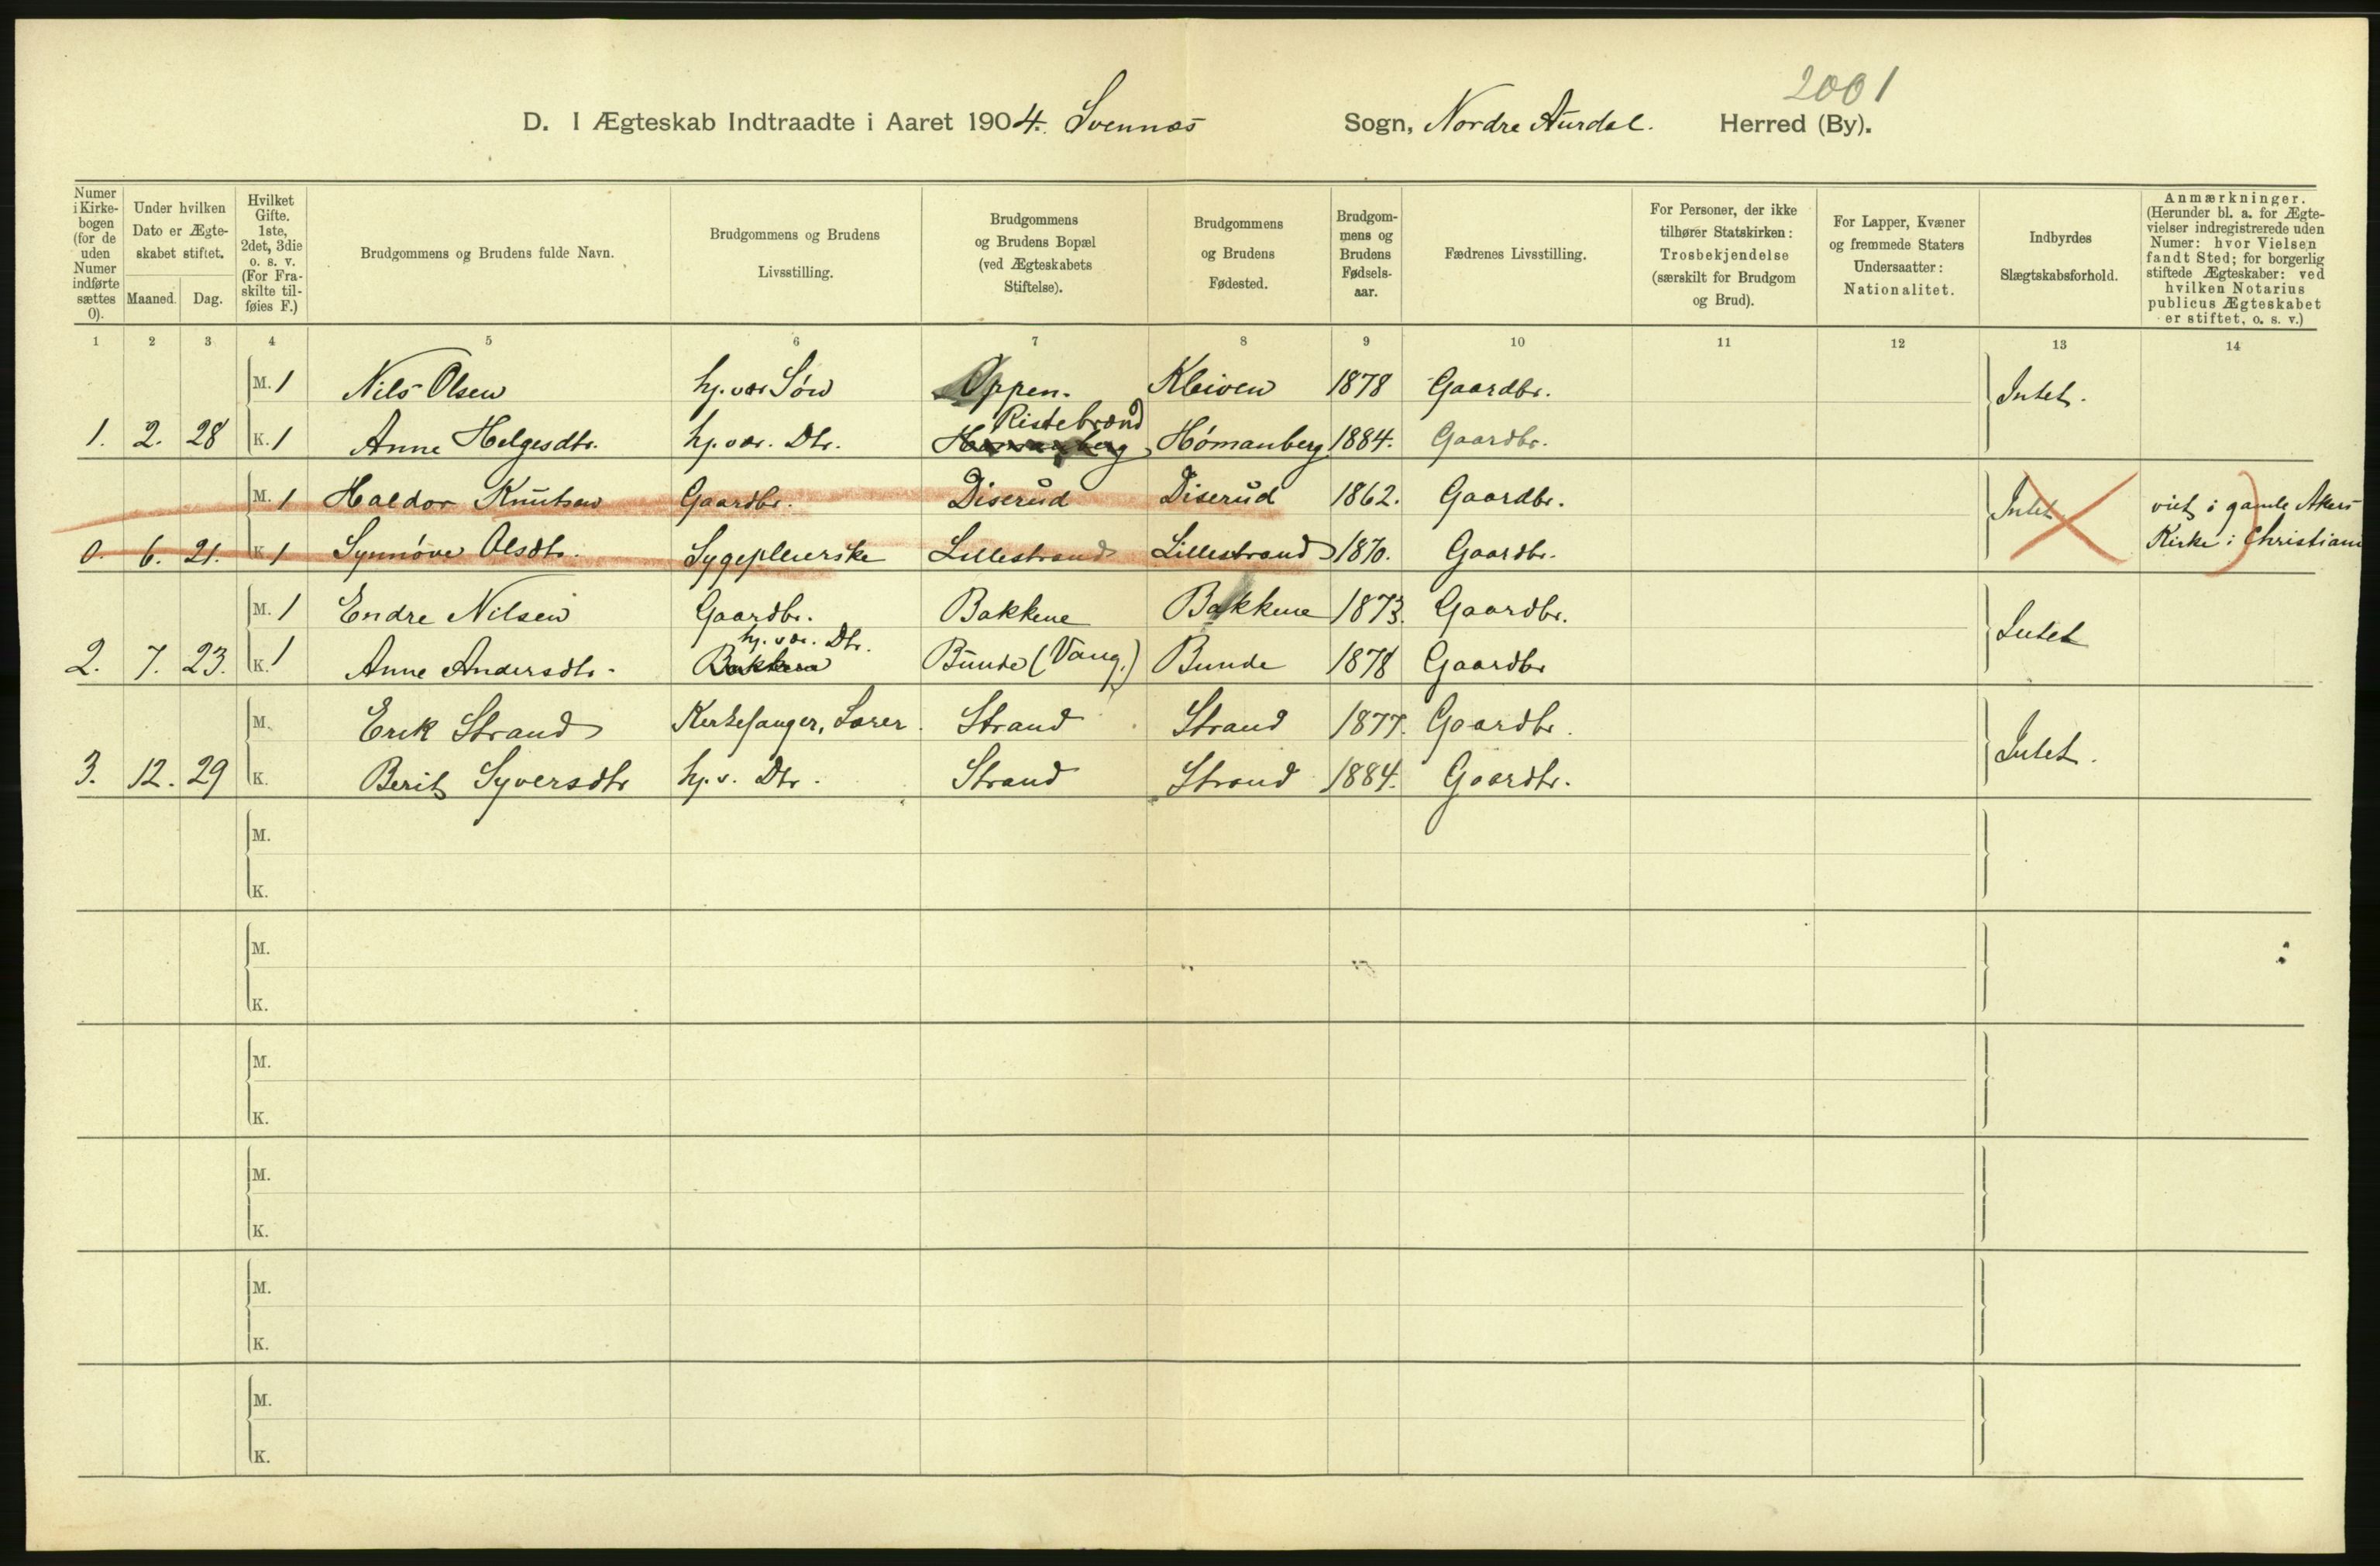 2001
D. I Ægteskab Indtraadte i Aaret 1904. Svennæs Sogn, Nordre Aurdal. Herred (By).
Numer i Kirkebogen (for de uden Numer indførte sættes 0).
Under hvilken Dato er Ægteskabet stiftet.
Maaned. Dag.
Hvilket Gifte. 1ste, 2det, 3die o. s. v. (For Fraskilte tilføies F.)
Brudgommens og Brudens fulde Navn.
Brudgommens og Brudens Livsstilling.
Brudgommens og Brudens Bopæl (ved Ægteskabets Stiftelse).
Brudgommens og Brudens Fødested.
Brudgommens og Brudens Fødselsaar.
Fædrenes Livsstilling.
For Personer, der ikke tilhører Statskirken: Trosbekjendelse (særskilt for Brudgom og Brud).
For Lapper, Kvæner og fremmede Staters Undersaatter: Nationalitet.
Indbyrdes Slægtskabsforhold.
Anmærkninger. (Herunder bl. a. for Ægtevielser indregistrerede uden Numer: hvor Vielsen fandt Sted; for borgerlig stiftede Ægteskaber: ved hvilken Notarius publicus Ægteskabet er stiftet, o. s. v.)
1 2 3 4 5 6 7 8 9 10 11 12 13 14
M. 1 Nils Olsen hj. vær Søn Oppen. Kleiven 1878 Gaardbr. Intet.
Ristebrønd
1. 2. 28 K. 1 Anne Helgesdtr. hj. vær. Dtr. Hømanberg Hømanberg 1884. Gaardbr.
M. 1 Haldor Knutsen Gaardbr. Diserud Diserud 1862. Gaardbr. Intet viet i gamle Akers
0. 6. 21. K. 1 Synnøve Olsdtr. Sygepleierske Lillestrand Lillestrand 1870. Gaardbr. Kirke i Christiania
M. 1 Endre Nilsen Gaardbr. Bakkene Bakkene 1873. Gaardbr. Intet
hj. vær. Dtr.
2. 7. 23. K. 1 Anne Andersdtr. Bakkene Bunde (Vang.) Bunde 1878 Gaardbr
M. Erik Strand Kirkesanger, Lærer. Strand Strand 1877. Gaardbr. Intet.
3. 12. 29 K. Berit Syversdtr hj. v. Dtr. Strand Strand 1884. Gaardbr.
M.
K.
M.
K.
M.
K.
M.
K.
M.
K.
M.
K.